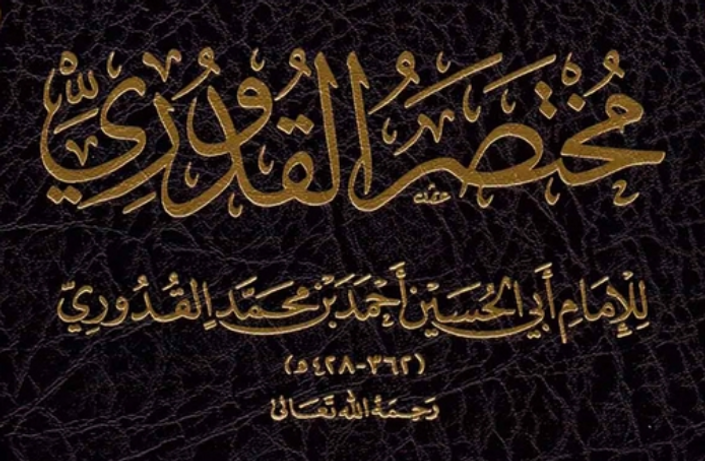 مُخْتَصَرُ الْقُدُورِيِّ
لِلْإِمَامِ أَبِي الْحُسَيْنِ أَحْمَدَ بْنِ مُحَمَّدٍ الْقُدُورِيِّ
(٣٦٢-٤٢٨ه)
رَحِمَهُ اللهُ تَعَالَىٰ